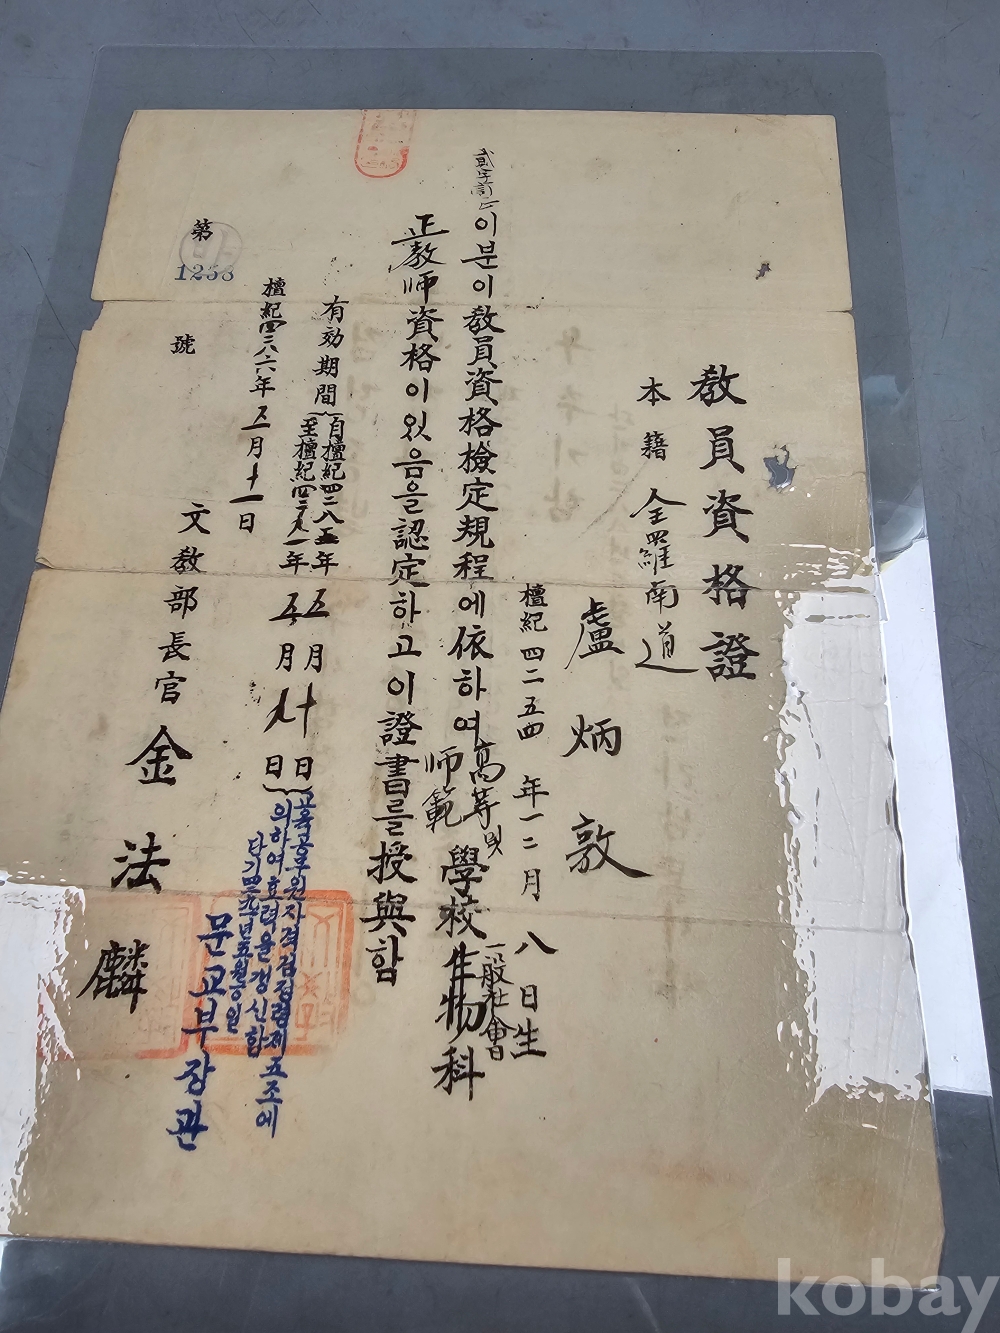 教員資格證
本籍 全羅南道
盧炳敦
檀紀四二五四年一二月八日生
貳字訂正
이분이教員資格檢定規程에依하여高等및師範學校生物科
一般社會
正教師資格이있음을認定하고이證書를授與함
有効期間
自檀紀四二八五年五月廿日
至檀紀四二九一年五月廿日
檀紀四二八六年五月十一日
교육공무원자격검정령제五조에
의하여효력을갱신함
문교부장관
文敎部長官 金法麟
第 1238 號
kobay